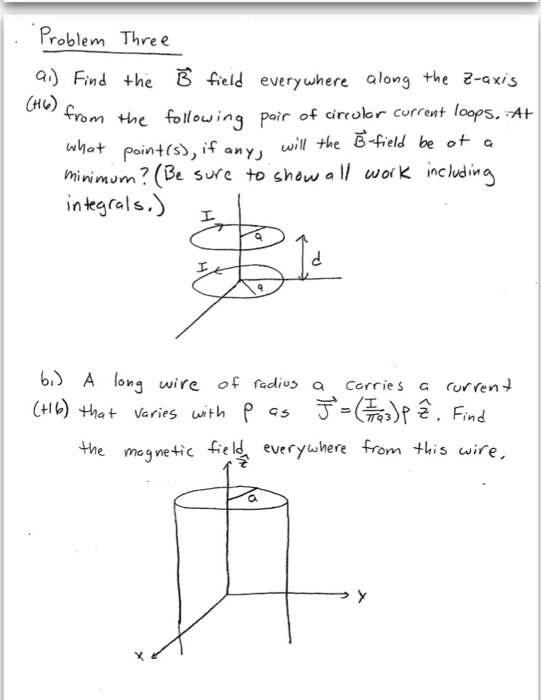 Problem Three
a.) Find the B⃗ field everywhere along the z-axis
(+16) from the following pair of circular current loops. At
what point(s), if any, will the B⃗-field be at a
minimum? (Be sure to show all work including
integrals.)
I
a
I
d
a
b.) A long wire of radius a carries a current
(+16) that varies with ρ as J⃗ = (I/πa3)ρ ẑ. Find
the magnetic field everywhere from this wire.
ẑ
a
y
x